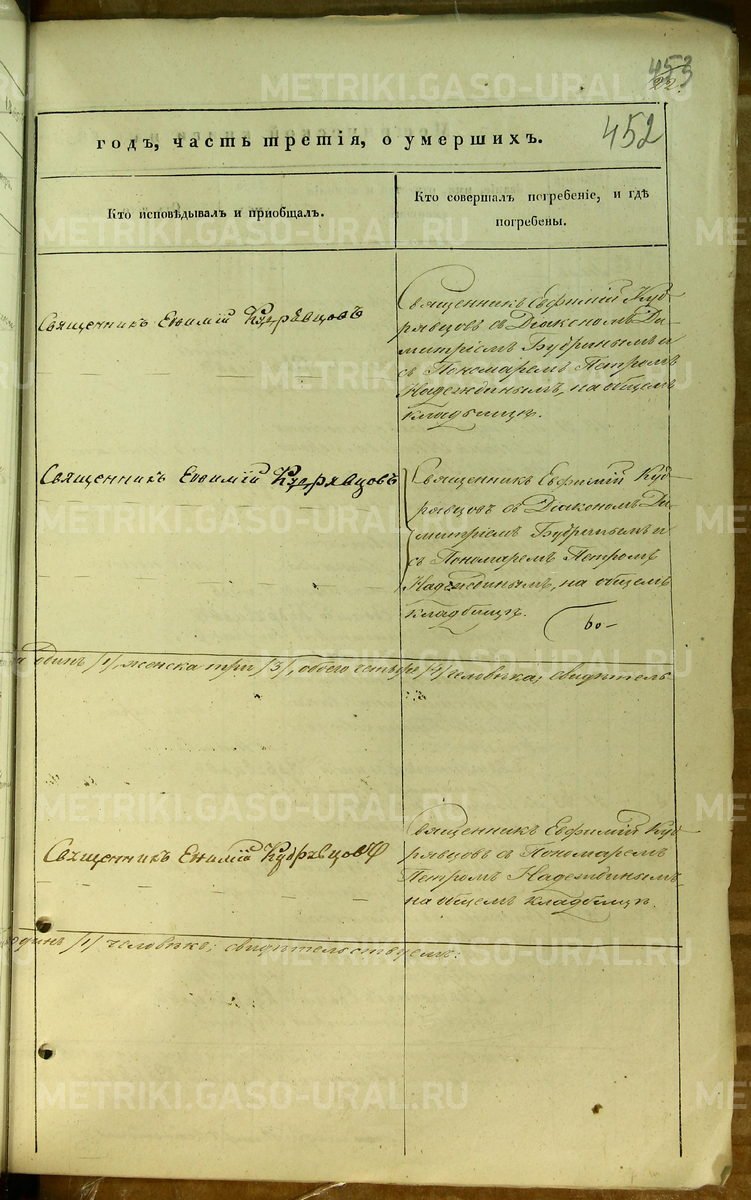 453
22.
452
годъ, часть третія, о умершихъ.
Кто исповѣдывалъ и приобщалъ.
Кто совершалъ погребеніе, и гдѣ
погребены.
Священникъ Евѳимій Кудрявцовъ
Священникъ Евфимій Куд-
рявцовъ съ Діакономъ Ди-
митріемъ Будринымъ и
съ Пономаремъ Петромъ
Надеждинымъ, на общемъ
кладбищѣ.
Священникъ Евѳимій Кудрявцовъ
Священникъ Евфимій Куд-
рявцовъ съ Діакономъ Ди-
митріемъ Будринымъ и
съ Пономаремъ Петромъ
Надеждинымъ, на общемъ
кладбищѣ.
одинъ /1/, женска три /3/, обоего четыре /4/ человѣка; свидѣтель
Священникъ Евѳимій Кудрявцовъ
Священникъ Евфимій Куд-
рявцовъ съ Пономаремъ
Петромъ Надеждинымъ,
на общемъ кладбищѣ.
одинъ /1/ человѣкъ; свидѣтельствуемъ:
METRIKI.GASO-URAL.RU